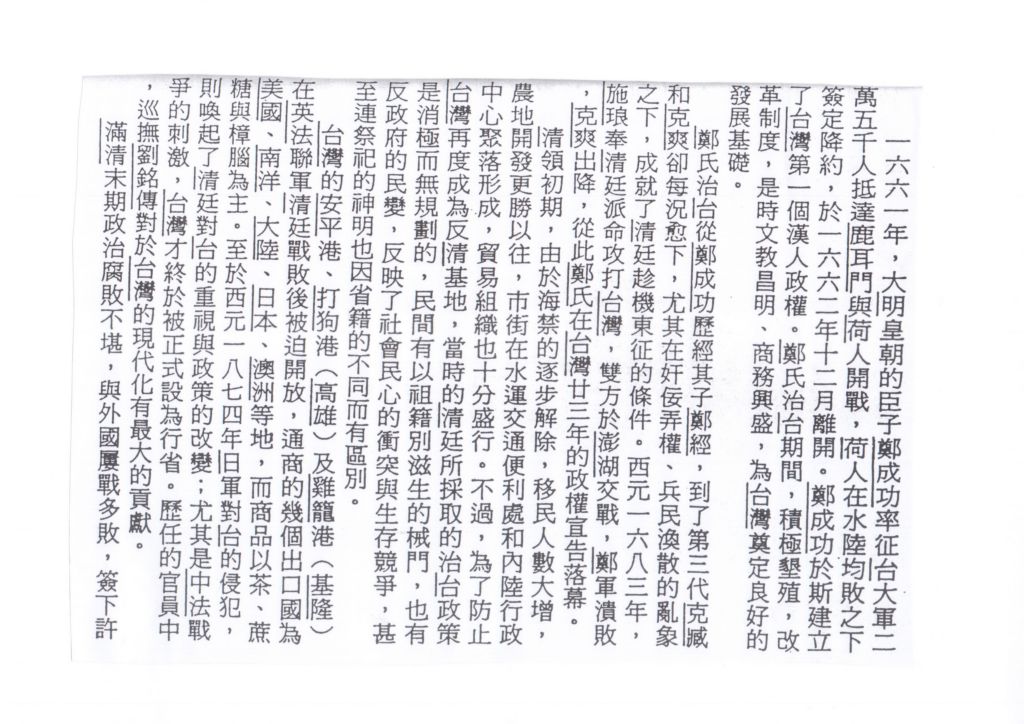 一六六一年，大明皇朝的臣子鄭成功率征台大軍二
萬五千人抵達鹿耳門與荷人開戰，荷人在水陸均敗之下
簽定降約，於一六六二年十二月離開。鄭成功於斯建立
了台灣第一個漢人政權。鄭氏治台期間，積極墾殖，改
革制度，是時文教昌明、商務興盛，為台灣奠定良好的
發展基礎。
鄭氏治台從鄭成功歷經其子鄭經，到了第三代克臧
和克爽卻每況愈下，尤其在奸佞弄權、兵民渙散的亂象
之下，成就了清廷趁機東征的條件。西元一六八三年，
施琅奉清廷派命攻打台灣，雙方於澎湖交戰，鄭軍潰敗
，克爽出降，從此鄭氏在台灣廿三年的政權宣告落幕。
清領初期，由於海禁的逐步解除，移民人數大增，
農地開發更勝以往，市街在水運交通便利處和內陸行政
中心聚落形成，貿易組織也十分盛行。不過，為了防止
台灣再度成為反清基地，當時的清廷所採取的治台政策
是消極而無規劃的，民間有以祖籍別滋生的械鬥，也有
反政府的民變，反映了社會民心的衝突與生存競爭，甚
至連祭祀的神明也因省籍的不同而有區別。
台灣的安平港、打狗港（高雄）及雞籠港（基隆）
在英法聯軍清廷戰敗後被迫開放，通商的幾個出口國為
美國、南洋、大陸、日本、澳洲等地，而商品以茶、蔗
糖與樟腦為主。至於西元一八七四年日軍對台的侵犯，
則喚起了清廷對台的重視與政策的改變；尤其是中法戰
爭的刺激，台灣才終於被正式設為行省。歷任的官員中
，巡撫劉銘傳對於台灣的現代化有最大的貢獻。
滿清末期政治腐敗不堪，與外國屢戰多敗，簽下許